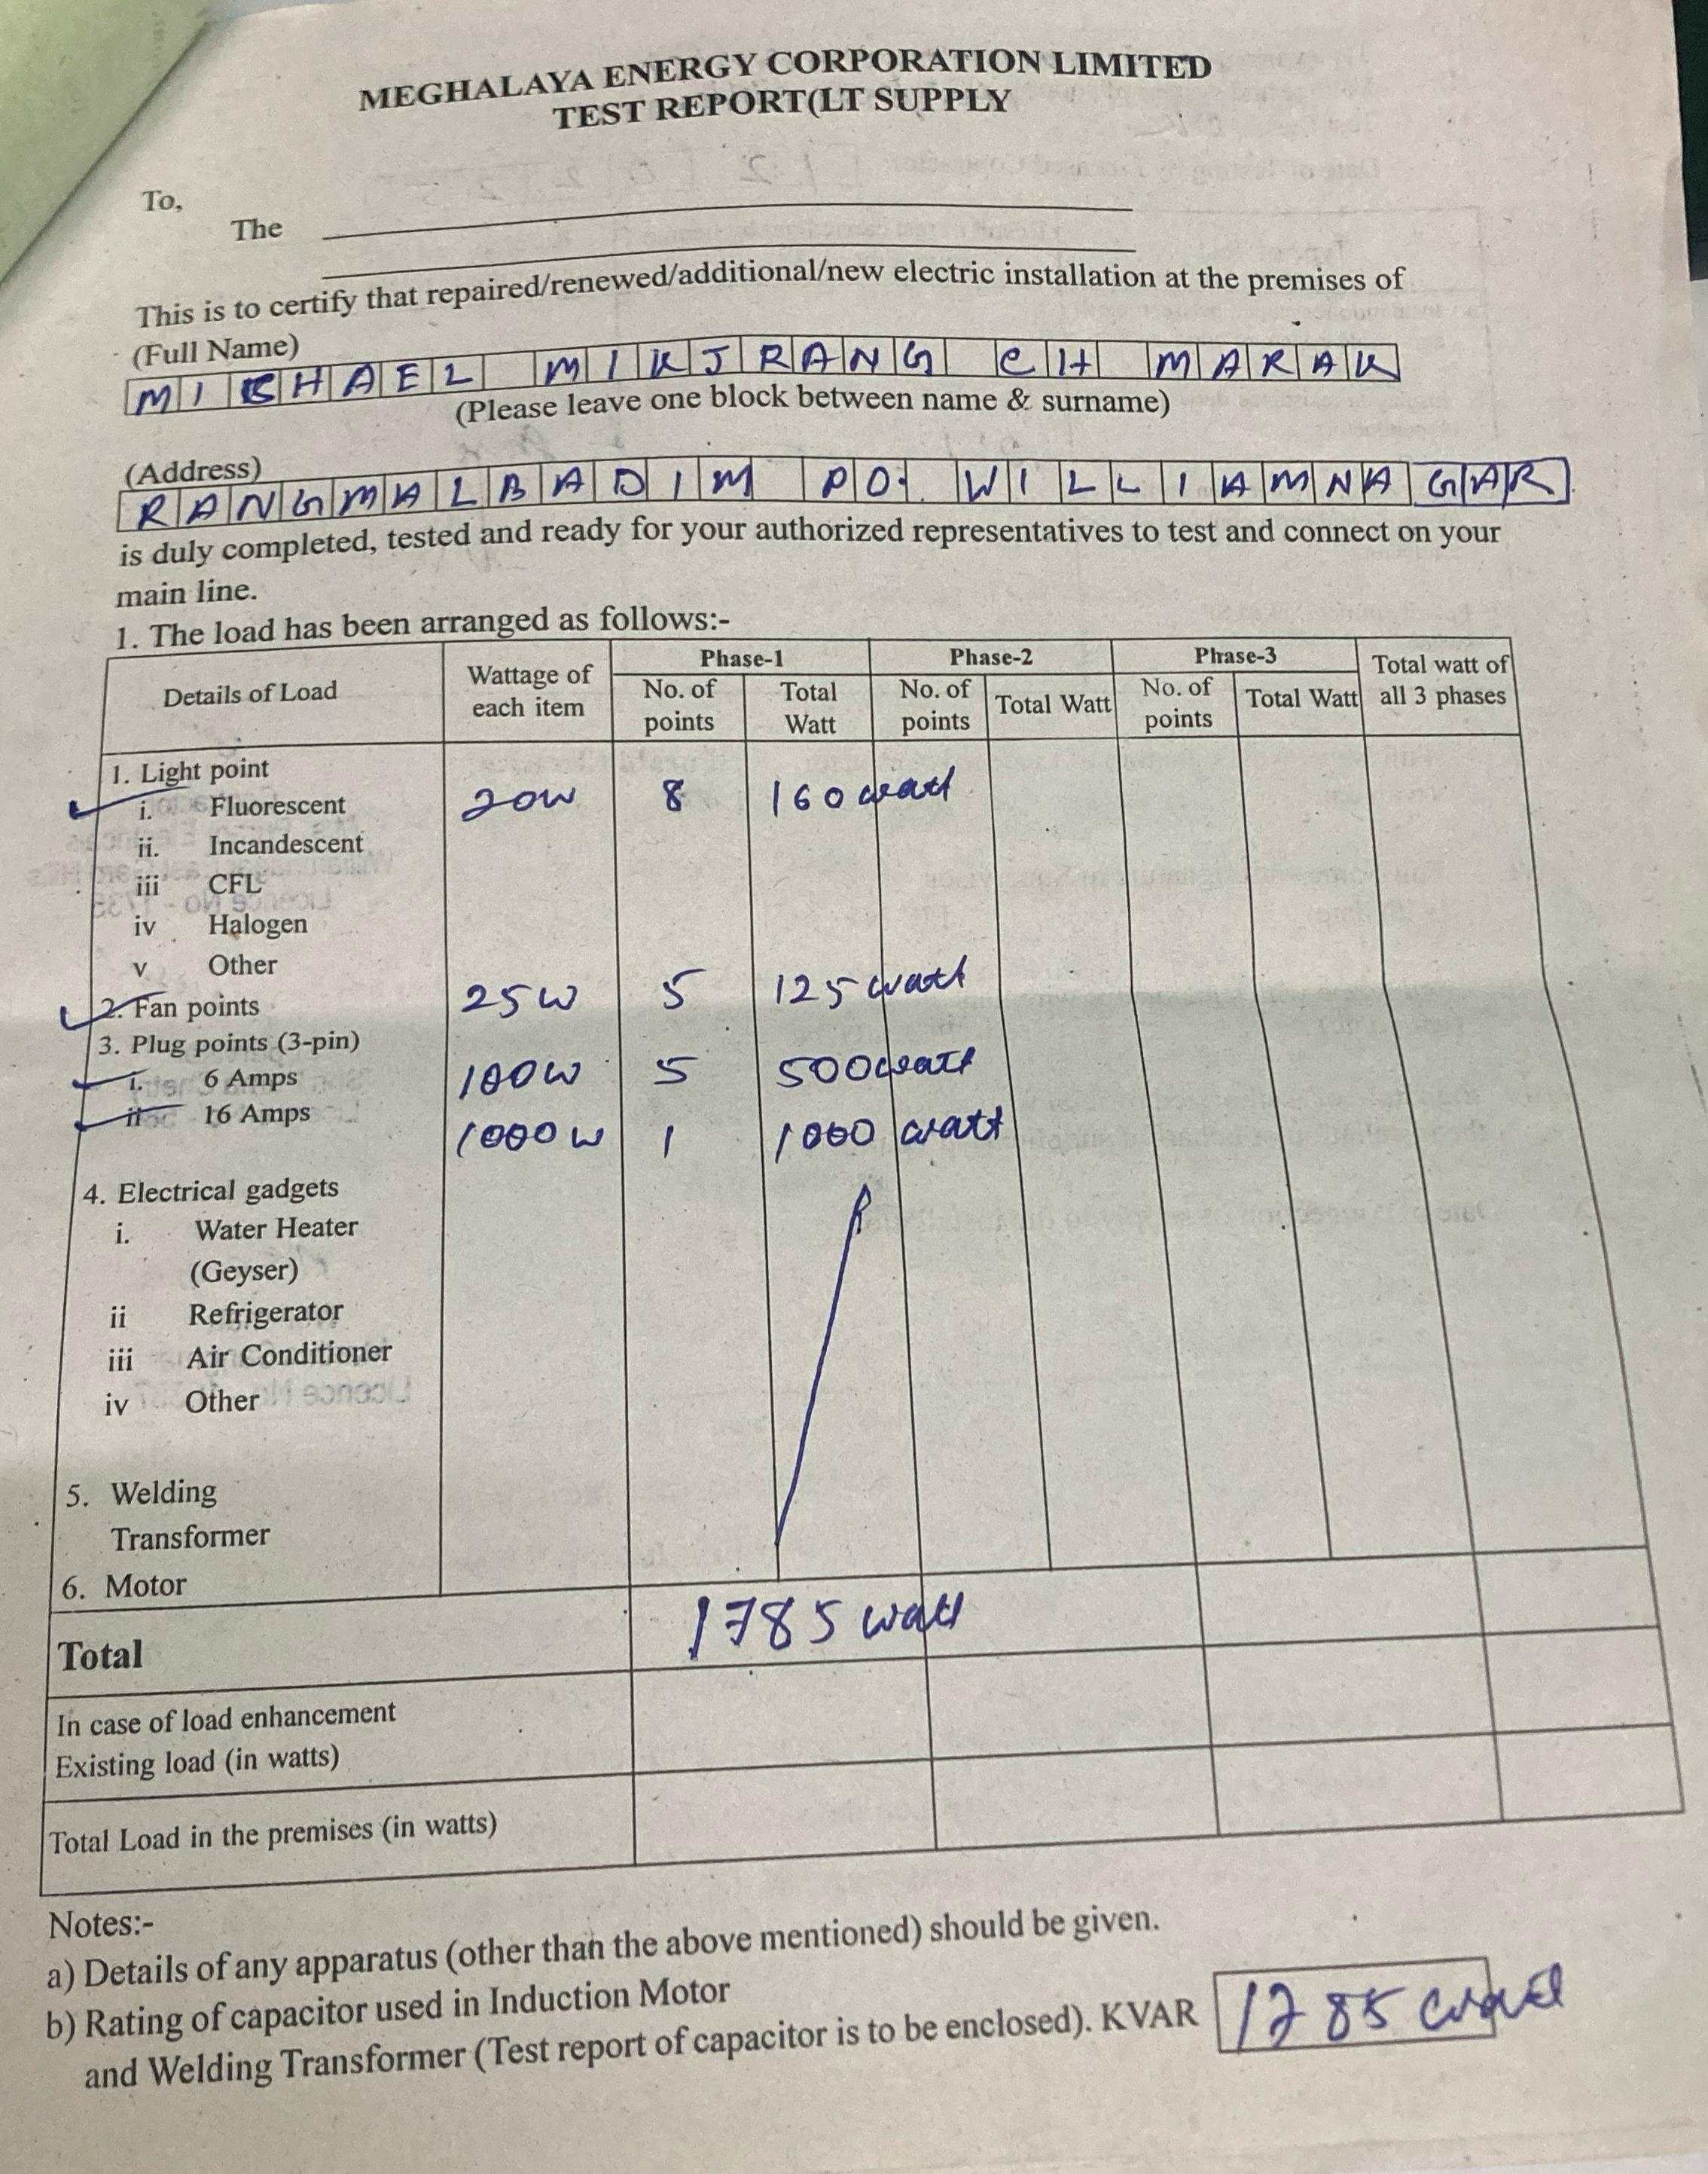 MEGHALAYA ENERGY CORPORATION LIMITED
TEST REPORT(LT SUPPLY
To,
The
This is to certify that repaired/renewed/additional/new electric installation at the premises of
(Full Name)
MICHAEL MIKJRANG CH MARAK
(Please leave one block between name & surname)
(Address)
RANGMALBADIM PO. WILLIAMNAGAR
is duly completed, tested and ready for your authorized representatives to test and connect on your
main line.
1. The load has been arranged as follows:-
Details of Load Wattage of each item Phase-1 Phase-2 Phase-3 Total watt of all 3 phases
No. of points Total Watt No. of points Total Watt No. of points Total Watt
1. Light point
i. Fluorescent 20W 8 160 watt
ii. Incandescent
iii CFL
iv Halogen
v Other
2. Fan points 25W 5 125 watt
3. Plug points (3-pin)
i. 6 Amps 100W 5 500 watt
ii 16 Amps 1000W 1 1000 watt
4. Electrical gadgets
i. Water Heater
(Geyser)
ii Refrigerator
iii Air Conditioner
iv Other
5. Welding
Transformer
6. Motor
Total 1785 watt
In case of load enhancement
Existing load (in watts)
Total Load in the premises (in watts)
Notes:-
a) Details of any apparatus (other than the above mentioned) should be given.
b) Rating of capacitor used in Induction Motor
and Welding Transformer (Test report of capacitor is to be enclosed). KVAR 1785 watt